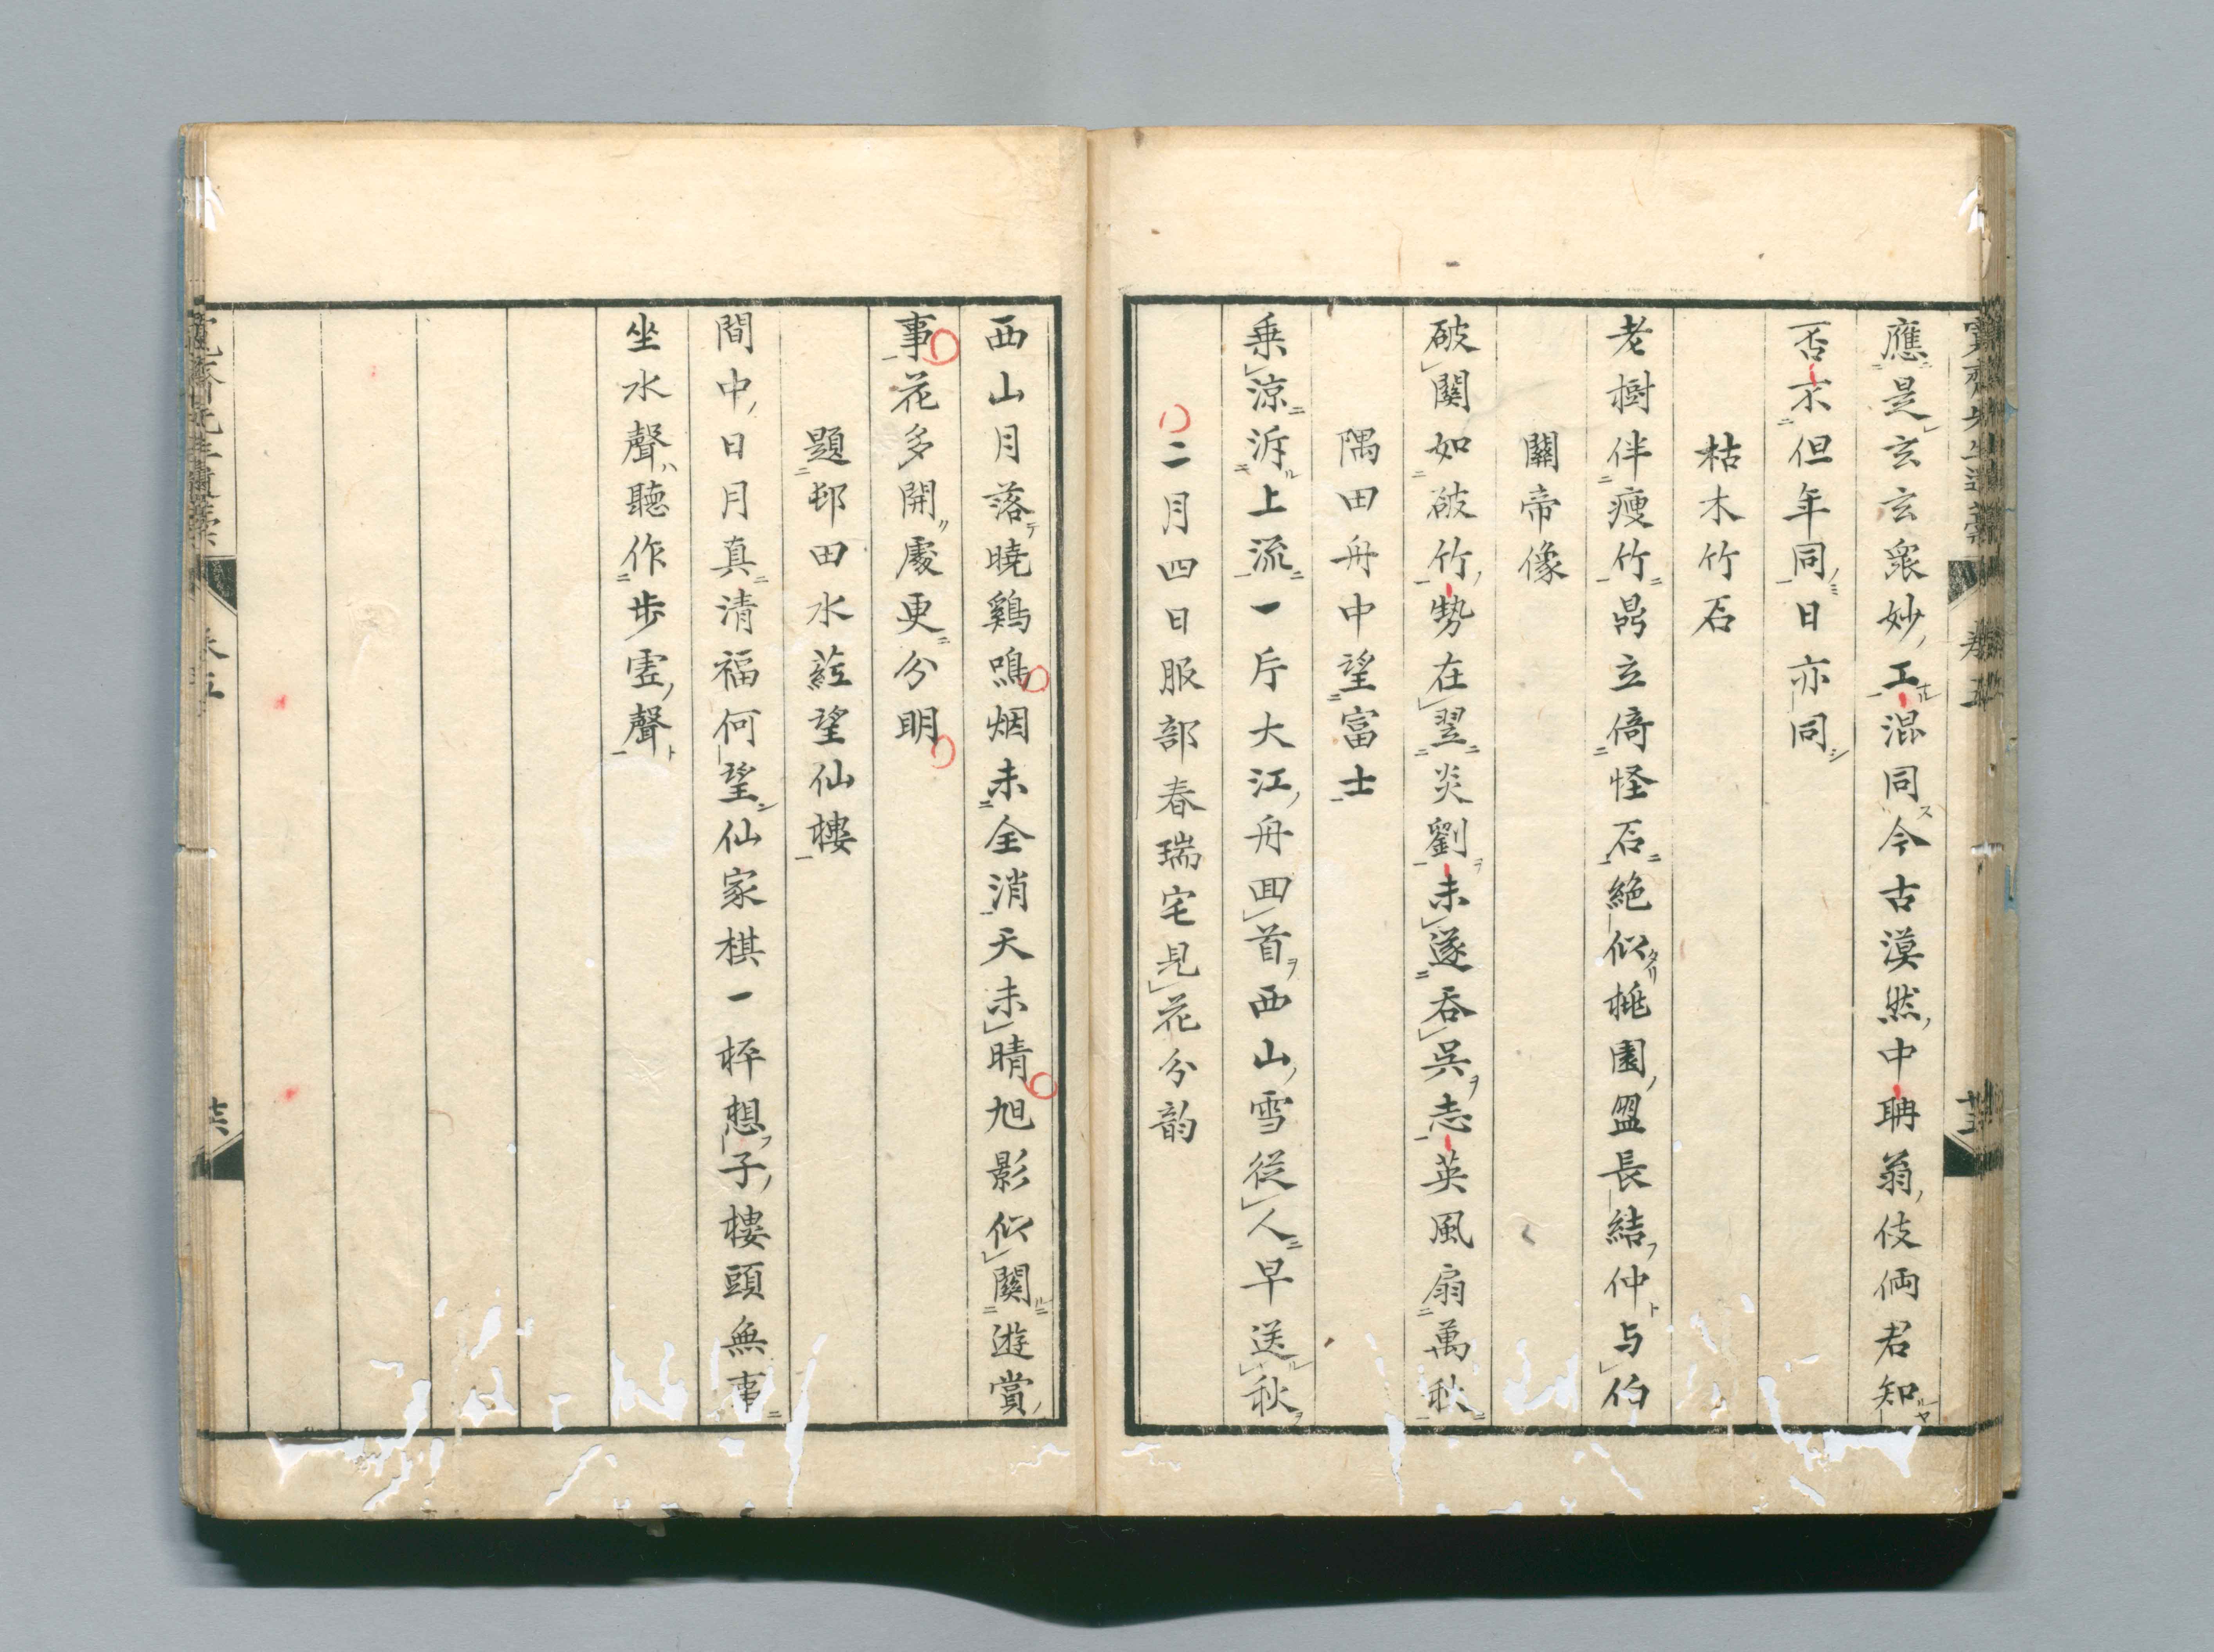 應是玄玄衆妙工混同今古漠然中聃翁伎倆君知
否不但年同日亦同
枯木竹石
老樹伴瘦竹鼎立倚怪石絶似桃園盟長結仲与伯
關帝像
破關如破竹勢在翌炎劉未遂呑呉志英風扇萬秋
隅田舟中望富士
乗涼泝上流一斤大江舟囬首西山雪従人早送秋
二月四日服部春瑞宅見花分韵
西山月落曉鷄鳴烟未全消天未晴旭影似關遊賞
事花多開處更分明
題邨田水莊望仙樓
間中日月真清福何望仙家棋一枰想子樓頭無事
坐水聲聽作步虚聲
卷五